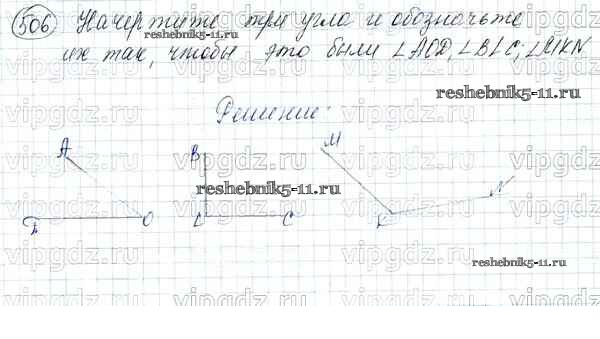 506. Начертите три угла и обозначьте
reshebnik5-11.ru
их так, чтобы это были ∠AOD, ∠BLC, ∠MKN
reshebnik5-11.ru
Решение:
vipgdz.ru
A B M
reshebnik5-11.ru
D O L C K N
reshebnik5-11.ru
vipgdz.ru